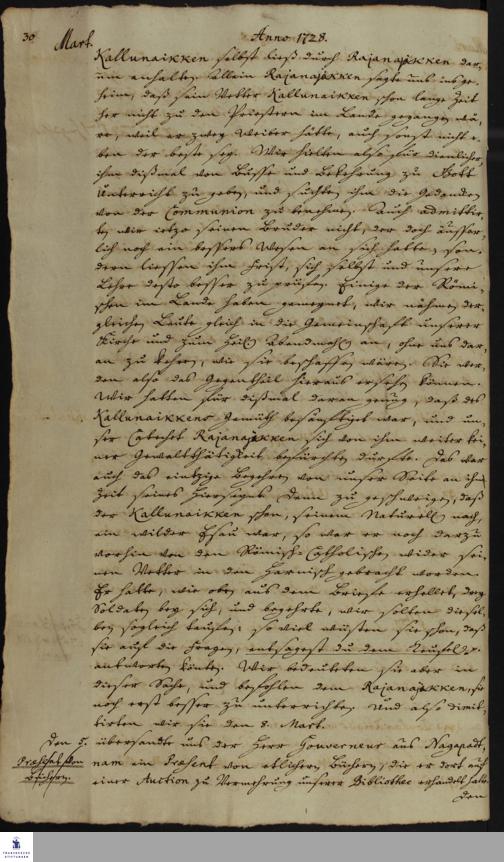 30
Mart.
Anno 1728.
Kallunaikken selbst ließ durch Rajanajakken dar-
um anhalten. Allein Rajanajakken sagte uns ins ge-
heim, daß sein Vetter Kallunaikken schon lange Zeit
her nicht zu den Priestern im Lande gegangen wä-
re, weil er zwey Weiber hätte, auch sonst nicht e-
ben der beste sey. Wir hielten also für dienlicher,
ihm dißmal von Busse und Bekehrung zu Gott
Unterricht zu geben, und suchten ihm die Gedancken
von der Communion zu benehmen. Auch admittir-
ten wir ietzo seinen Bruder nicht, der doch äusser-
lich noch ein bessers Wesen an sich hatte, son-
dern liessen ihm Frist, sich selbst und unsere
Lehre desto besser zu prüfen. Einige der Römi-
schen im Lande haben gemeynet, wir nähmen der-
gleichen Leute gleich in die Gemeinschaft unserer
Kirche und zum Heil. Abendmahl an, ohne uns dar-
an zu kehren, wie sie beschaffen wären. Sie wer-
den also das Gegentheil hieraus ersehen können.
Wir hatten für dißmal daran genug, daß des
Kallunaikkens Gemüth besänftiget war, und un-
ser Catechet Rajanajakken sich von ihm weiter kei-
ner Gewaltthätigkeit befürchten durfte. Das war
auch das eintzige Begehren von unser Seite an ihn
Zeit seines Hierseyns. Denn zu geschweigen, daß
der Kallunaikken schon, seinem Naturell nach,
ein wilder Esau war, so war er noch darzu
vorhin von den Römisch-Catholischen wider sei-
nen Vetter in den Harnisch gebracht worden.
Er hatte, wie oben aus dem Briefe erhellet, drey
Soldaten bey sich, und begehrte, wir solten diesel-
ben sogleich taufen: so viel wüsten sie schon, daß
sie auf die Fragen, entsagest du dem Teufel?
antworten könten. Wir bedeuteten sie aber in
dieser Sache, und befohlen dem Rajanajakken, sie
noch erst besser zu unterrichten. Und also dimit-
tirten wir sie den 8. Mart.
Den
Præsent von
Büchern.
übersandte uns der Herr Gouverneur aus Nagapadt-
nam ein Præsent von etlichen Büchern, die er dort auf
einer Auction zu Vermehrung unserer Bibliothec erhandelt hatte.
Den
FRANCKESCHE
STIFTUNGEN